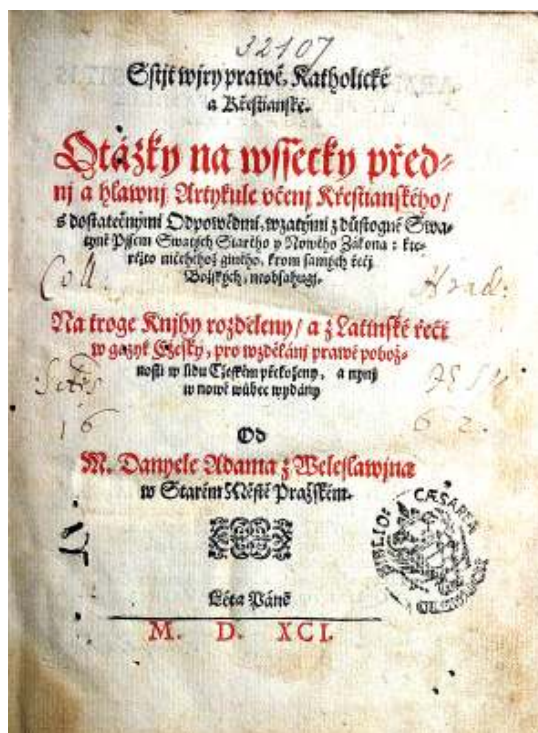 32107
Sstijt wjry prawé, Katholické
a Křestianské.
Otázky na wssecky před-
nj a hlawnj Artykule včenj Křestianského/
s dostatečnými Odpowědmi, wzatými z důstogné Swa-
tyně Pjsem Swatých Starého y Nowého Zákona: kte-
réžto ničéhéhož giného, krom samých řečj
Božských, neobsahugj.
Coll. Hrad:
Na troge Knjhy rozděleny/ a z Latinské řeči
w gazyk Cžesky, pro wzdělánj prawé pobož-
nosti w lidu Cžeském přeloženy, a nynj
w nowě wůbec wydány
16 62.
Od
M. Danyele Adama z Weleslawjna
w Starém Městě Pražském.
BIBLIO: CÆSAREA
Léta Páně
M. D. XCI.